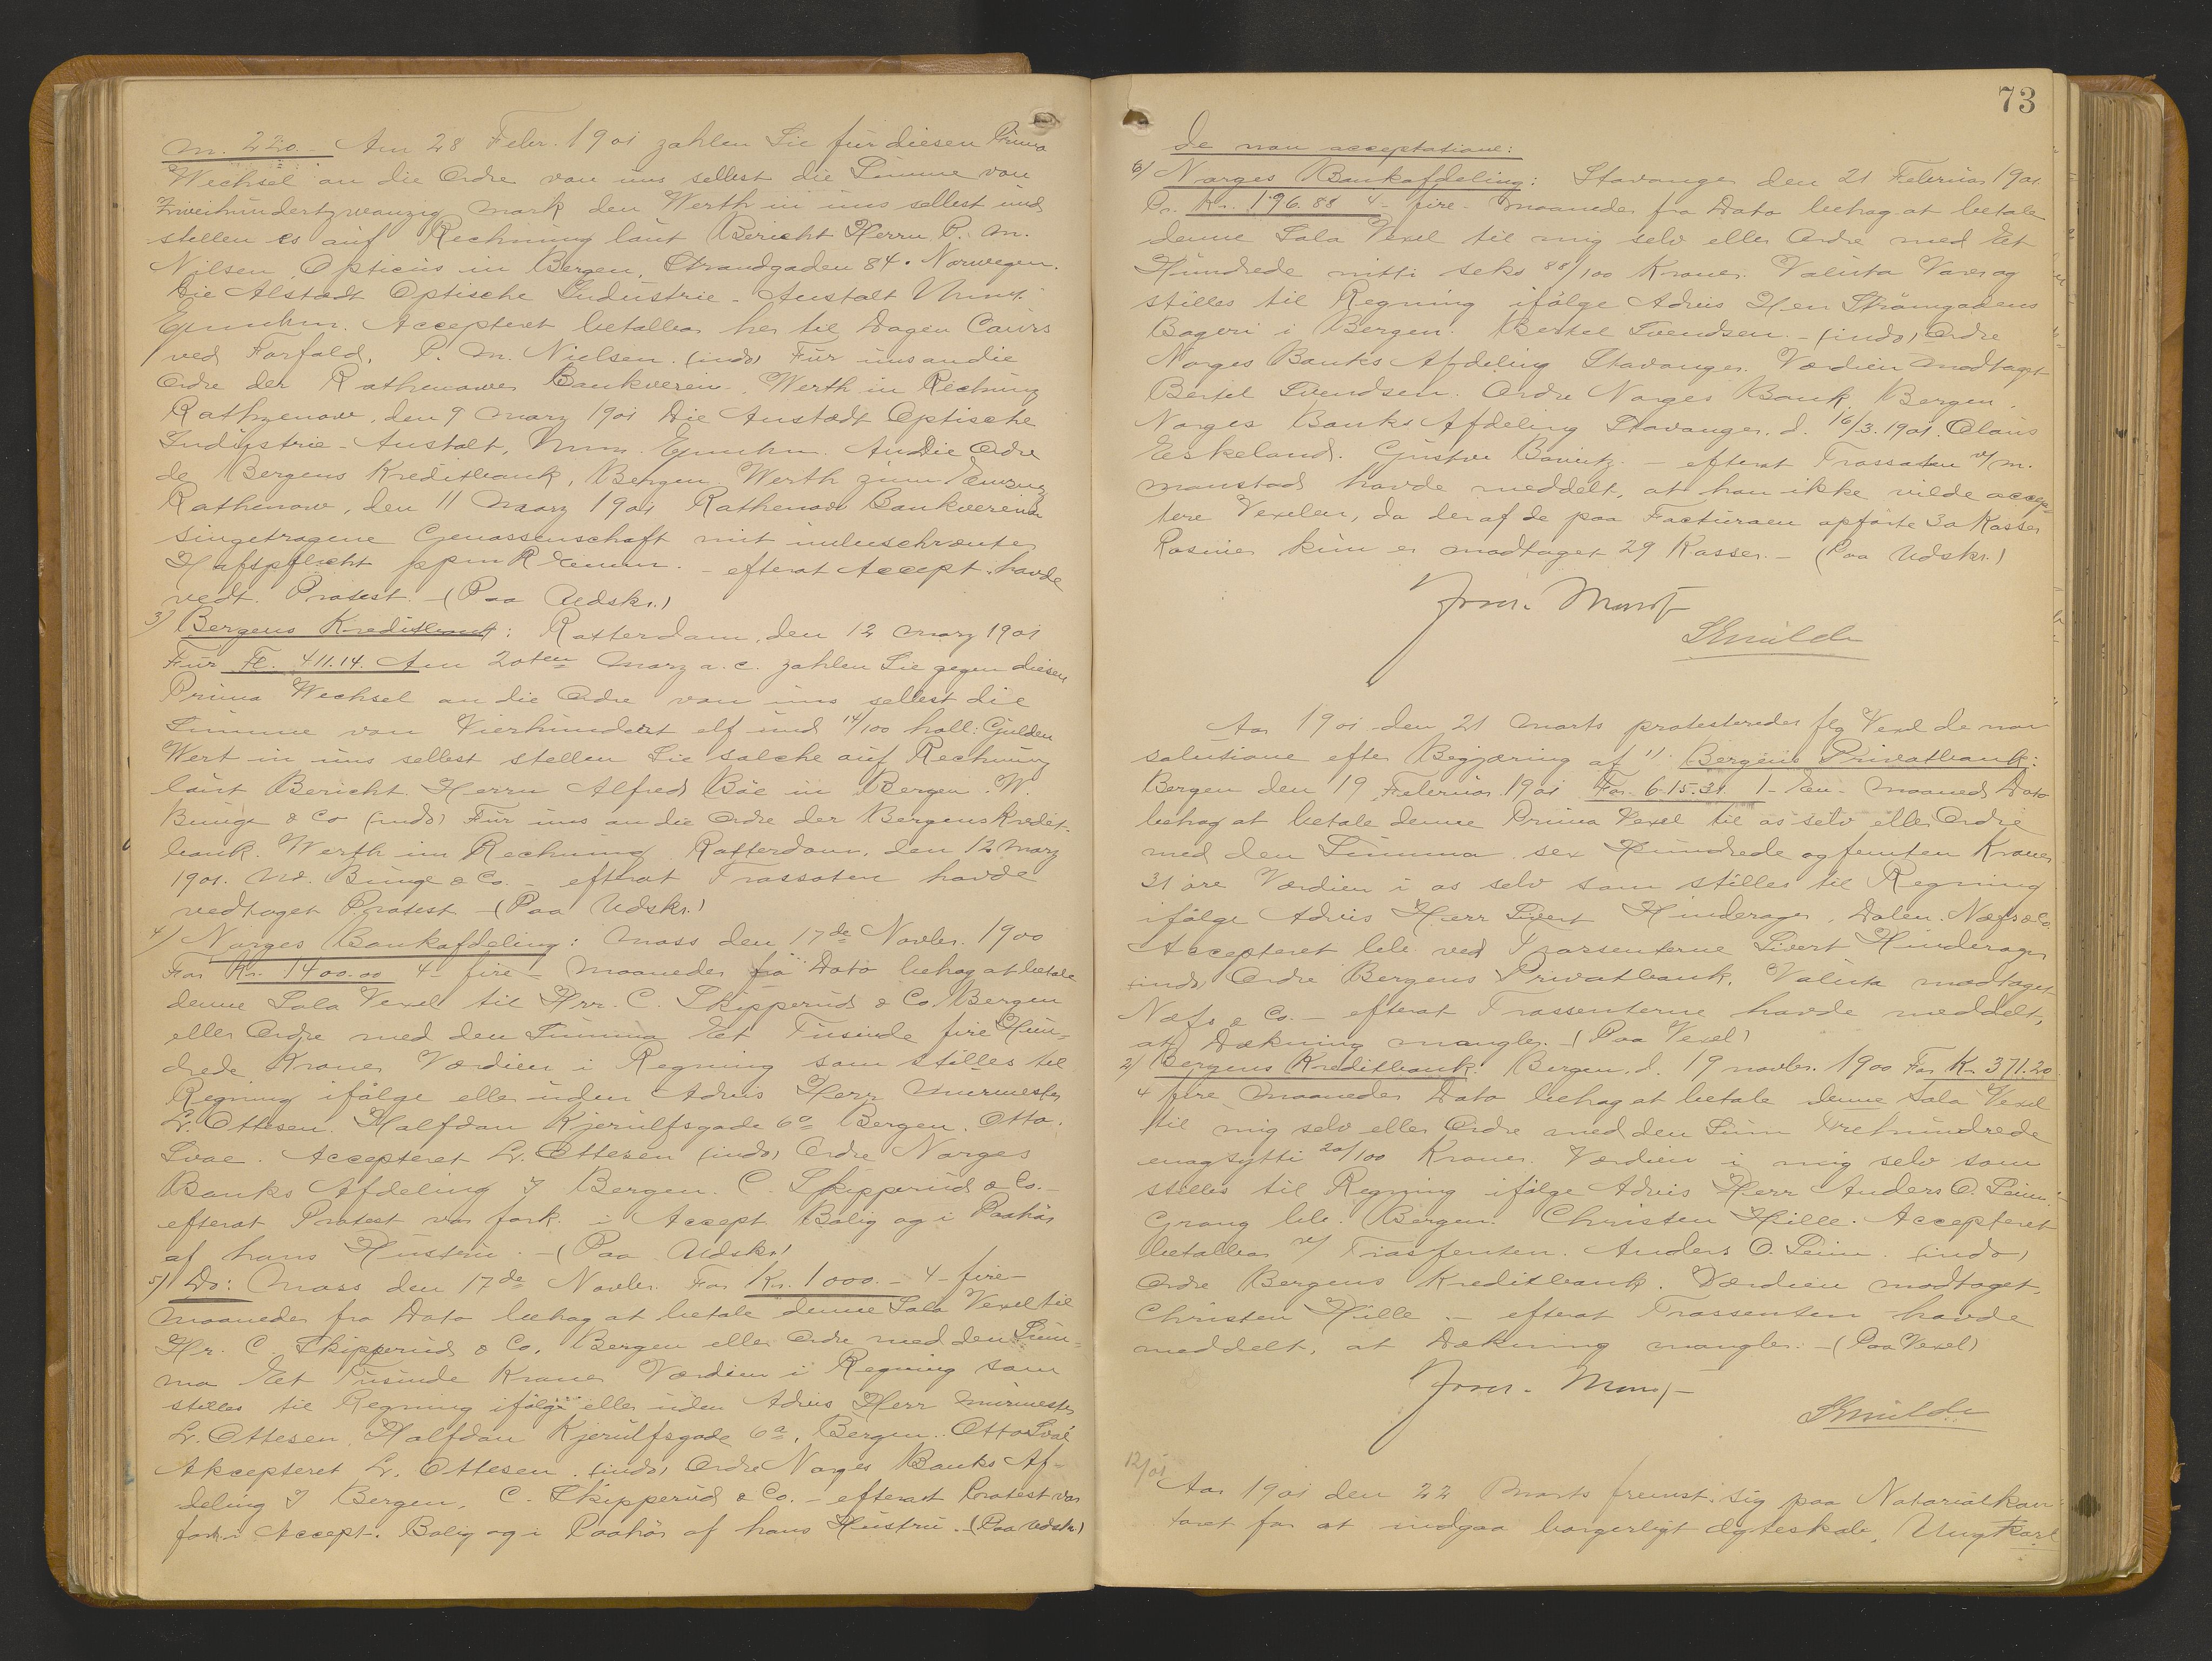 M. 220.- Am 28 Febr. 1901 zahlen Sie für diesen Prima
Wechsel an die Ordre von uns selbst die Summe von
Zweihundertzwanzig Mark den Werth in uns selbst und
stellen es auf Rechnung laut Bericht Herrn P. M.
Nilsen, Opticus in Bergen, Strandgaden 84. Norwegen.
Die Alstædt Optische Industrie-Anstalt
Accepteret betalbar her til Dagen Cours
ved Forfald. P. M. Nielsen. (indo) Für uns an die
Ordre der Rathenower Bankverein. Werth in Rechnung
Rathzenow, den 9 Marz 1901 Die Anstædt Optische
Industrie-Anstalt, An Die Ordre
de Bergens Kreditbank, Bergen Werth zum
Rathenow, den 11 Maarz 1901 Rathenow Bankverein
singetragene Genossenschaft mit
Haftspflicht ppm R - efterat Accept. havde
vedt. Protest. - (Paa Udskr.)
3) Bergens Kreditbank: Rotterdam, den 12 Marz 1901
Für Fl. 411.14. Am 20ten Marz a. c. zahlen Sie gegen diesen
Prima Wechsel an die Ordre von uns selbst die
Summe von Vierhundert elf und 14/100 holl: Gulden
Wert in uns selbst stellen Sie solche auf Rechnung
laut Bericht Herrn Alfred Böe in Bergen. W.
Bunge & Co (indo) Für uns an die Ordre der Bergens Kredit-
bank. Werth im Rechnung Rotterdam, den 12 Marz
1901. Wd. Bunge & Co. - efterat Trassaten havde
vedtaget Protest - (Paa Udskr.)
4) Norges Bankafdeling: Moss den 17de Novbr. 1900
For Kr. 1400.00 4- fire- Maaneder fra Dato behag at betale
denne Sola Vexel til Hrr. C. Skipperud & Co. Bergen
eller Ordre med den Summa Et Tusinde fire Hun-
drede Kroner Værdien i Regning som stilles til
Regning ifølge eller uden Advis Herr Murmester
L. Ottesen. Halfdan Kjerulfsgade 6a Bergen. Otto.
Svae. Accepteret L. Ottesen (indo) Ordre Norges
Banks Afdeling I Bergen. C. Skipperud & Co. -
efterat Protest var fork. i Accept. Bolig og i Paahør
af hans Hustru. - (Paa Udskr.)
5) Do: Moss den 17de Novbr. For Kr. 1000.- 4- fire-
Maaneder fra Dato behag at betale denne Sola Vexel til
Hr. C. Skipperud & Co. Bergen eller Ordre med den Sum-
ma Et Tusinde Kroner Værdien i Regning som
stilles til Regning ifølge eller uden Advis Herr Murmester
L. Ottesen. Halfdan Kjerulfsgade 6a, Bergen. Otto Svae
Akcepteret L. Ottesen. (indo) Ordre Norges Banks Af-
deling I Bergen, C. Skipperud & Co. - efterat Protest var
fork. i Accept. Bolig og i Paahør af hans Hustru. - (Paa Udskr.)
73
de non acceptatione:
6) Norges Bankafdeling: Stavanger den 21 Februar 1901
Pr. Kr. 196.88 4- fire- Maaneder fra Dato behag at betale
denne Sola Vexel til mig selv eller Ordre med Et
Hundrede nitti seks 88/100 Kroner. Valuta Varer og
stilles til Regning ifølge Advis Herr Strømgadens
Bageri i Bergen. Bertel Svendsen. - (indo) Ordre
Norges Banks Afdeling Stavanger. Værdien modtaget
Bertel Svendsen. Ordre Norges Bank, Bergen.
Norges Banks Afdeling Stavanger. d. 16/3. 1901. Claus
Eskeland. Gustav - efterat Trassaten v/ M.
Monstad havde meddelt, at han ikke vilde accep-
tere Vexelen, da der af de paa Facturaen opførte 30 Kasser
Rosiner kun er modtaget 29 Kasser. - (Paa Udskr.)
Aar 1901 den 21 Marts protesteredes flg Vexl de non
solutione efter Begjæring af 1) Bergens Privatbank:
Bergen den 19 Februar 1901 For 615.31. 1- Een- Maaned Dato
behag at betale denne Prima Vexel til os selv eller Ordre
med den Summa sex Hundrede og femten Kroner
31 øre Værdien i os selv som stilles til Regning
ifølge Advis Herr Sivert Hinderager. Dalen. Næfs & Co.
Accepteret bet. ved Trassenterne Sivert Hinderager
indo. Ordre Bergens Privatbank. Valuta modtaget
Næfs & Co. - efterat Trassenterne havde meddelt,
at Dækning mangler. - (Paa Vexel)
2) Bergens Kreditbank: Bergen, d. 19 novbr. 1900 For Kr. 371.20
4 fire Maaneder Dato behag at betale denne Sola Vexel
til mig selv eller Ordre med den Sum Trehundrede
enogsytti 20/100 Kroner. Værdien i mig selv som
stilles til Regning ifølge Advis Herr Anders O. Leim.
Bergen. Christen Hille. Accepteret
betalbar v/ Trassenten. Anders O. Leim. (indo)
Ordre Bergens Kreditbank. Værdien modtaget.
Christen Hille. - efterat Trassenten havde
meddelt, at Dækning mangler. - (Paa Vexel)
12/01
Aar 1901 den 22 Marts fremst. sig paa Notarialkon-
toret for at indgaa borgerligt Ægteskab, Ungkarl